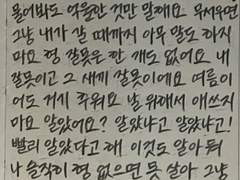 물어봐도 억울한 것만 말해요 무서우면
그냥 내가 갈 때까지 아무 말도 하지
마요 형 잘못은 한 개도 없어요 내
잘못이고 그 새끼 잘못이에요 여름이
어도 거기 추워요 날 위해서 애쓰지
마요 알았어요? 알았냐고 알았냐고!
빨리 알았다고 해! 이것도 알아 둬
나 솔직히 형 없으면 못 살아 그냥